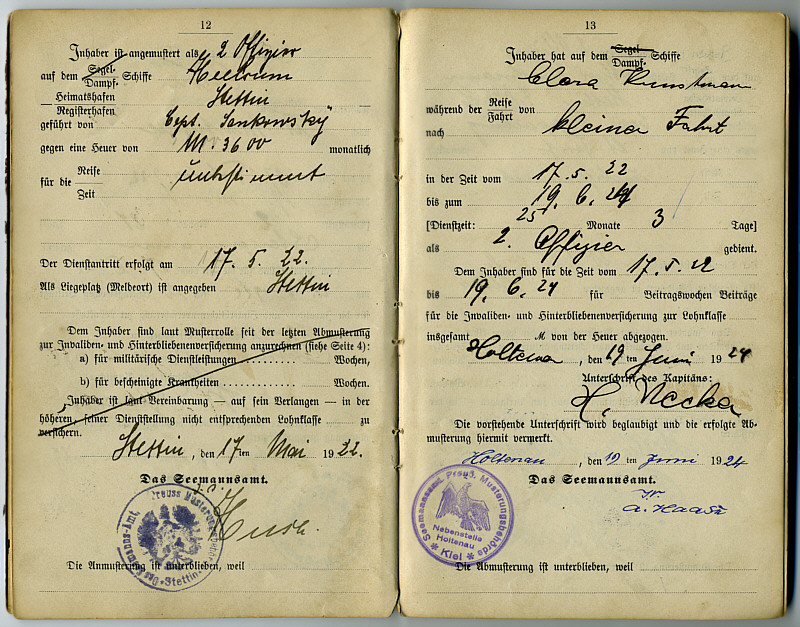 12
Inhaber ist angemustert als 2 Offizier
auf dem Segel- Dampf- Schiffe
Heimatshafen Stettin
Registerhafen
geführt von Cept. Sankowsky
gegen eine Heuer von M. 3600 monatlich
für die Reise unbestimmt
Zeit
Der Dienstantritt erfolgt am 17. 5. 22.
Als Liegeplatz (Meldeort) ist angegeben Stettin
Dem Inhaber sind laut Musterrolle seit der letzten Abmusterung
zur Invaliden- und Hinterbliebenenversicherung anzurechnen (siehe Seite 4):
a) für militärische Dienstleistungen . . . . . . . . . . Wochen,
b) für bescheinigte Krankheiten . . . . . . . . . . Wochen.
Inhaber ist laut Vereinbarung — auf sein Verlangen — in der
höheren, seiner Dienststellung nicht entsprechenden Lohnklasse zu
versichern.
Stettin, den 17ten Mai 1922.
Das Seemannsamt.
Das Seemanns-Amt. Stettin
Die Anmusterung ist unterblieben, weil
13
Inhaber hat auf dem Segel- Dampf- Schiffe
Clara Kunstmann
während der Reise Fahrt von
nach kleiner Fahrt
in der Zeit vom 17. 5. 22
bis zum 19. 6. 24
[Dienstzeit: 25 Monate 3 Tage]
als 2. Offizier gedient.
Dem Inhaber sind für die Zeit vom 17. 5. 22
bis 19. 6. 24 für Beitragswochen Beiträge
für die Invaliden- und Hinterbliebenenversicherung zur Lohnklasse
insgesamt M von der Heuer abgezogen.
Holtenau, den 19ten Juni 1924
Unterschrift des Kapitäns:
Die vorstehende Unterschrift wird beglaubigt und die erfolgte Ab-
musterung hiermit vermerkt.
Holtenau, den 19ten Juni 1924
Das Seemannsamt.
A. Haase
Seemannsamt, Preuß. Musterungsbehörde
Nebenstelle
Holtenau
* Kiel *
Die Abmusterung ist unterblieben, weil